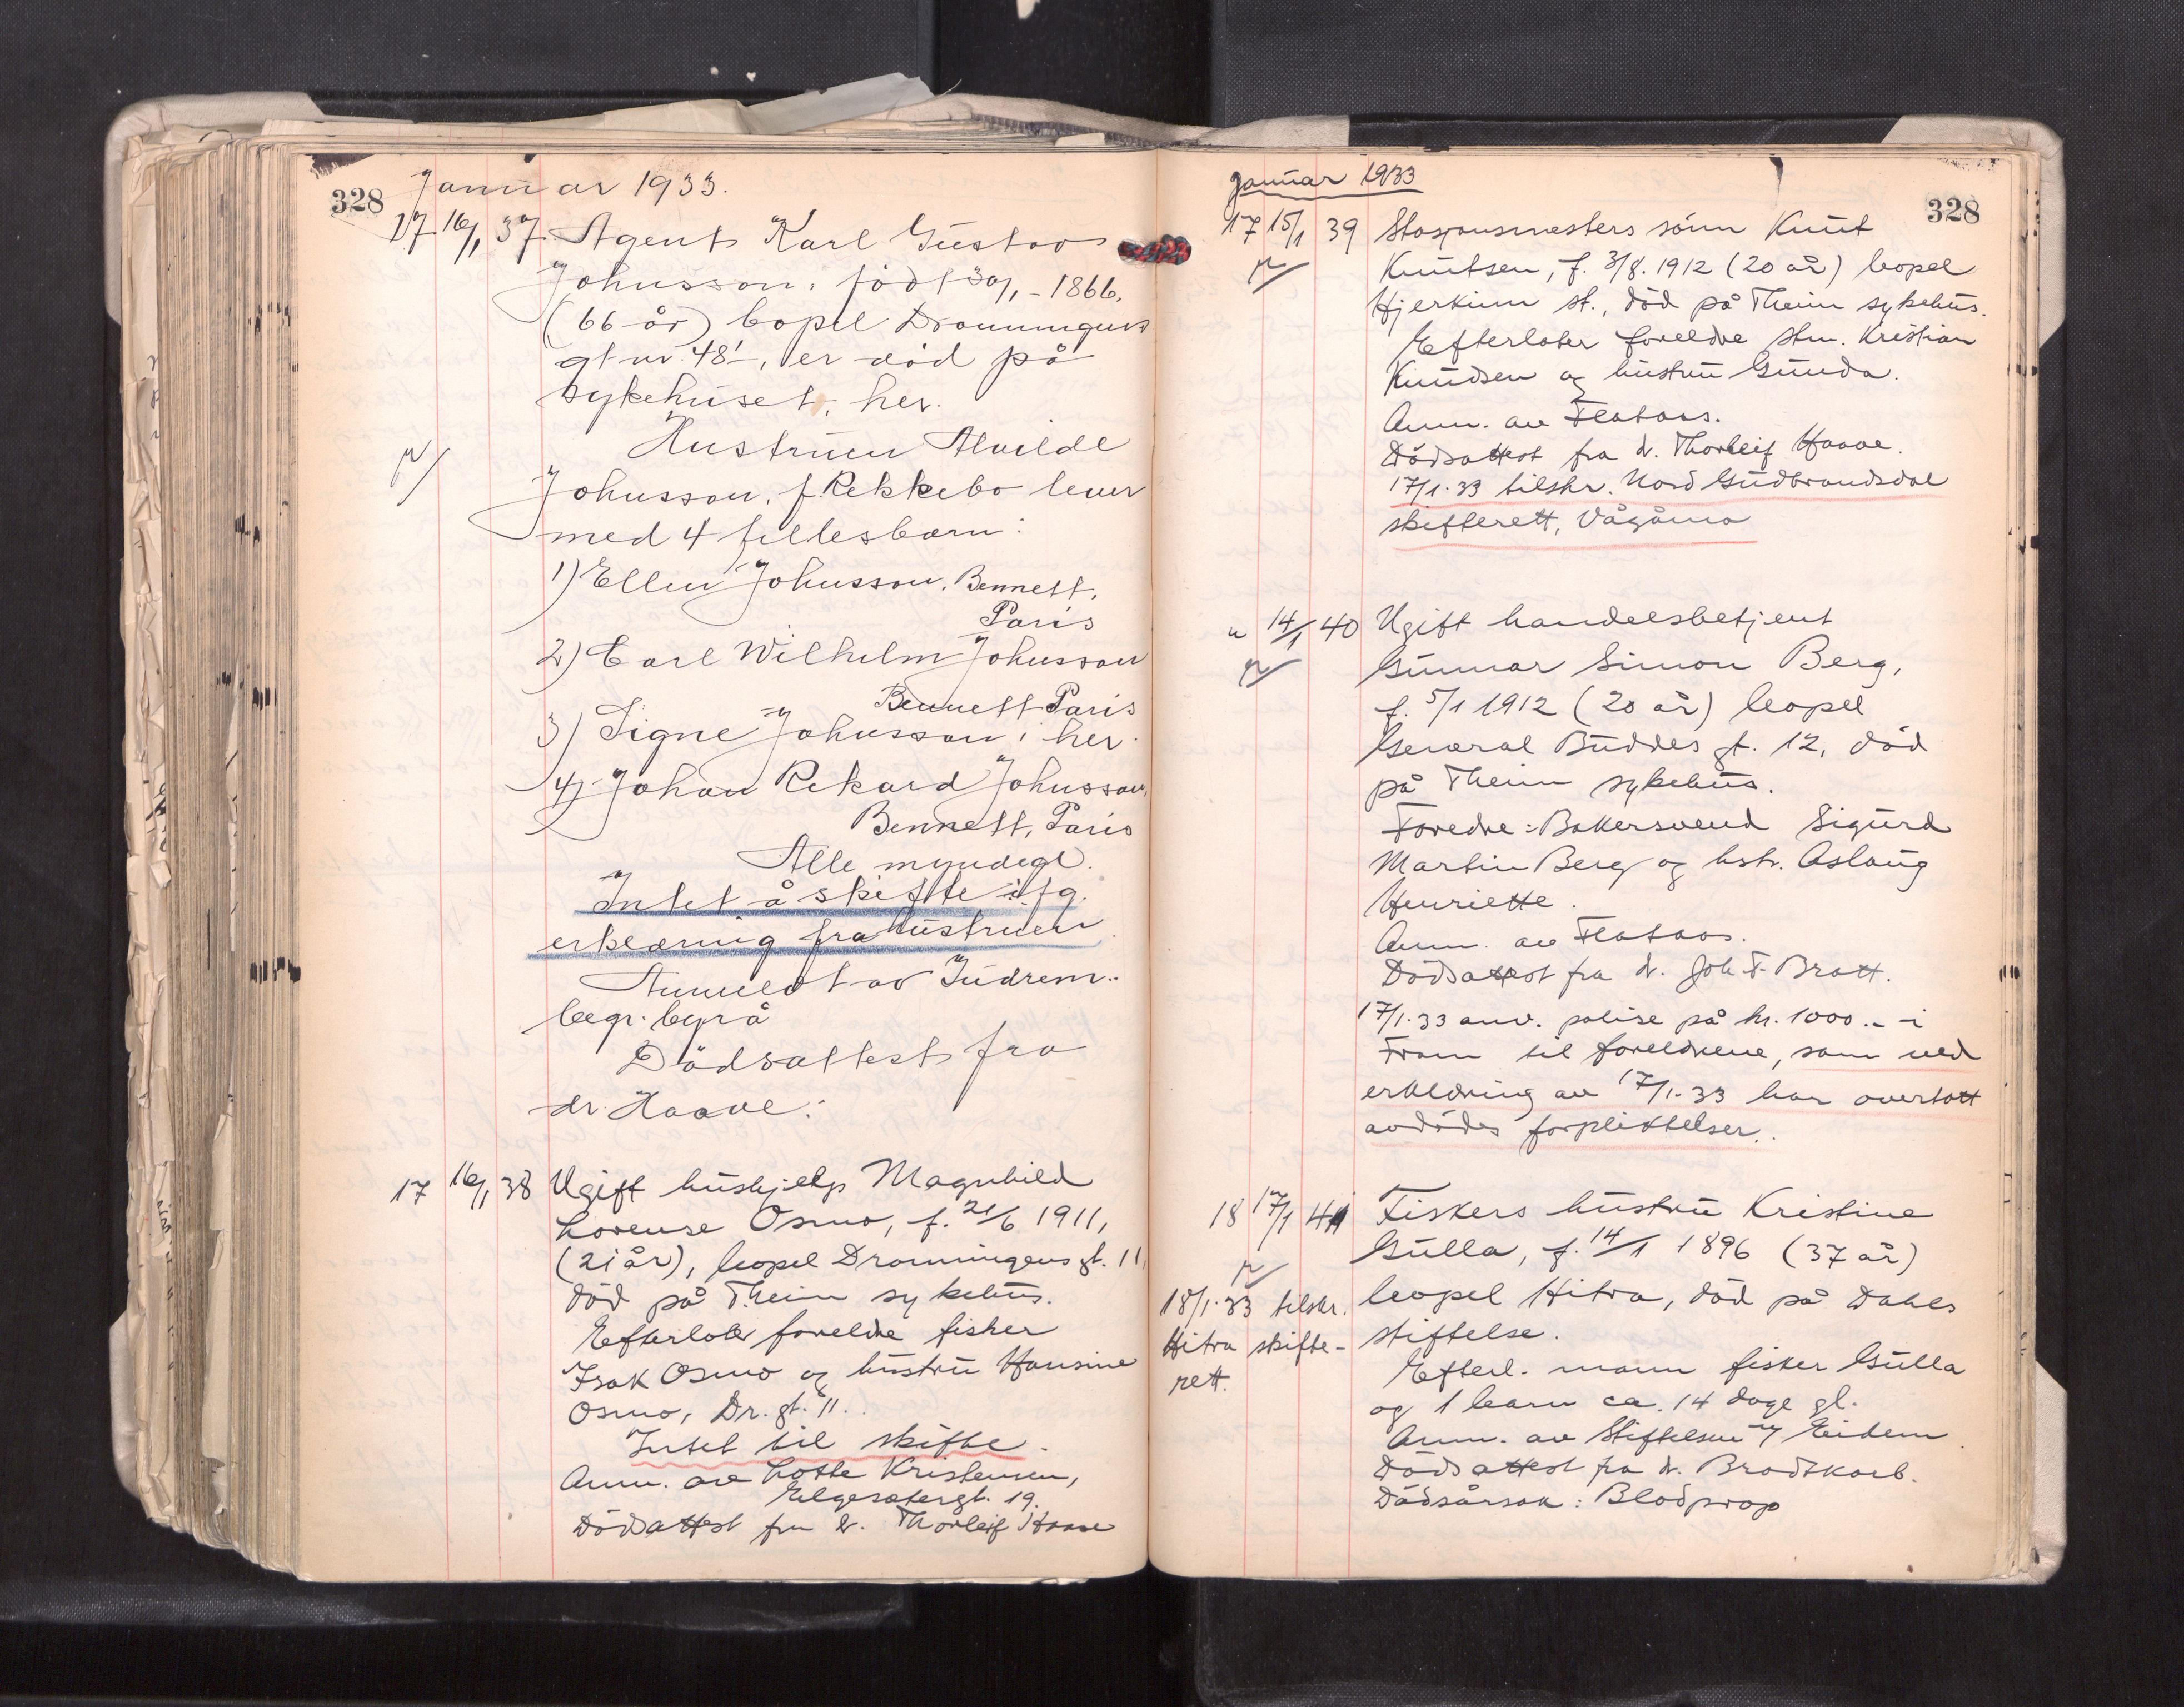 328
Januar 1933.
17 16/1 37 Agent Karl Gustav
Johnsson, født 30/1 - 1866.
(66 år) bopel Dronningens
gt nr. 48I, er død på
sykehuset, her.
Hustruen Alvilde
Johnsson, f. Rekkebo lever
med 4 fellesbarn:
1) Ellen Johnsson, Bennett,
Paris
2) Carl Wilhelm Johnsson
Bennett Paris
3) Signe Johnsson, her.
4) Johan Rikard Johnsson,
Bennett, Paris
Alle myndige.
Intet å skifte iflg.
erklæring fra hustruen.
Anmeldt av Indrem..
begr. byrå
Dødsattest fra
dr. Haave.
17 16/1 38 Ugift hushjelp Magnhild
Lorense Osmo, f. 21/6 1911,
(21 år), bopel Dronningens gt. 11,
død på Theim sykehus.
Efterlater foreldre fisker
Isak Osmo og hustru Hansine
Osmo, Dr. gt. 11.
Intet til skifte.
Anm. av Lotte Kristensen,
Elgesetergt. 19.
Dødsattest fra dr. Thorleif Haave
Januar 1933
328
17 15/1 39 Stasjonsmesters sønn Knut
Knutsen, f. 3/8. 1912 (20 år) bopel
Hjerkinn st., død på Theim sykehus.
Efterlater foreldre stm. Kristian
Knudsen og hustru Gunda.
Anm. av Flataas.
Dødsattest fra dr. Thorleif Haave.
17/1.33 tilskr. Nord Gudbrandsdal
skifterett, Vågåmo
" 14/1 40 Ugift handelsbetjent
Gunnar Simon Berg,
f. 5/1 1912 (20 år) bopel
General Buddes gt. 12, død
på Theim sykehus.
Foredre: Bakersvend Sigurd
Martin Berg og hstr. Aslaug
Henriette.
Anm. av Flataas.
Dødsattest fra dr. Joh. T. Bratt.
17/1.33 anv. polise på kr. 1000.- i
Fram til foreldrene, som ved
erklæring av 17/1-33 har overtatt
avdødes forpliktelser.
18 17/1 41 Fiskers hustru Kristine
Gulla, f. 14/1 1896 (37 år)
bopel Hitra, død på Dahls
stiftelse.
18/1.33 tilskr.
Hitra skifte-
rett.
Efterl. mann fisker Gulla
og 1 barn ca. 14 dage gl.
Anm. av Stiftelsen v/ Eidem.
Dødsattest fra dr. Brodtkorb.
Dødsårsak: Blodprop